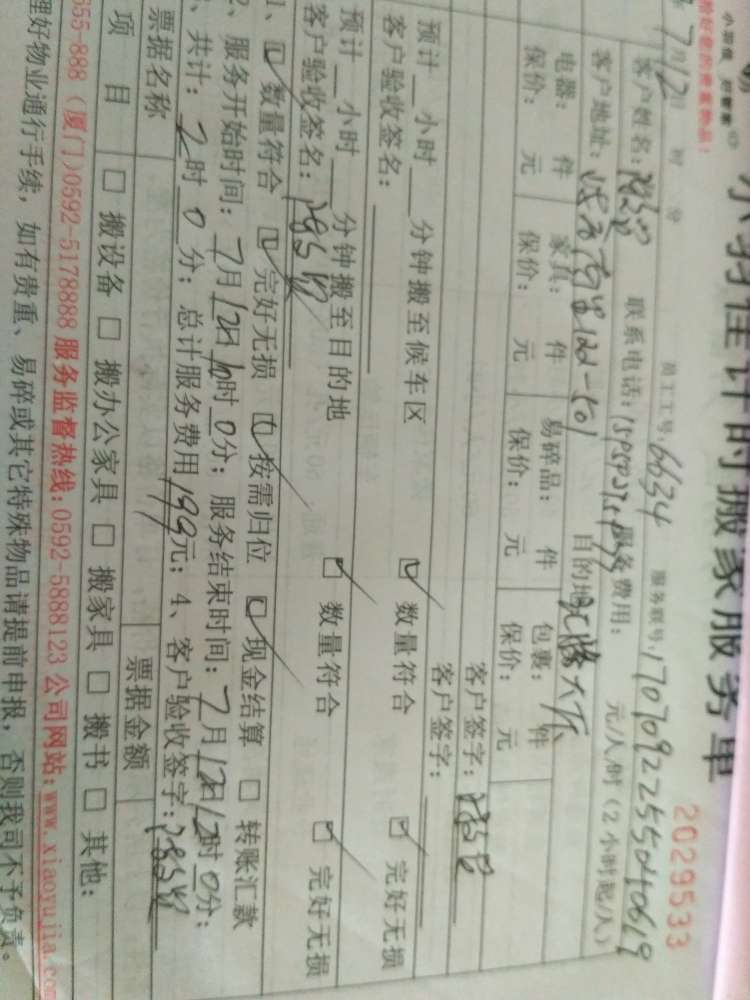 小羽佳计时搬家服务单
2029533
7月12日 时 分 员工工号:6634 服务联号:17070922555040619
客户姓名: 联系电话: 服务费用: 元/人/时(2小时起/人)
客户地址: 122-501 目的地
电器: 件 家具: 件 易碎品: 件 包裹: 件
保价: 元 保价: 元 保价: 元 保价: 元
客户签字:
预计 小时 分钟搬至候车区 数量符合 完好无损
客户验收签名: 客户签字:
预计 小时 分钟搬至目的地 数量符合 完好无损
客户验收签名:
1、 数量符合 完好无损 按需归位 现金结算 □ 转账汇款
2、服务开始时间:7月12日10时0分;服务结束时间:7月12日12时0分;
、共计:2时0分;总计服务费用199元;4、客户验收签字:
票据名称 票据金额
项 目 □ 搬设备 □ 搬办公家具 □ 搬家具 □ 搬书 □ 其他:
555-888 (厦门)0592-5178888 服务监督热线:0592-5888123 公司网站:www.xiaoyujia.com
理好物业通行手续,如有贵重、易碎或其它特殊物品请提前申报,否则我司不予负责。